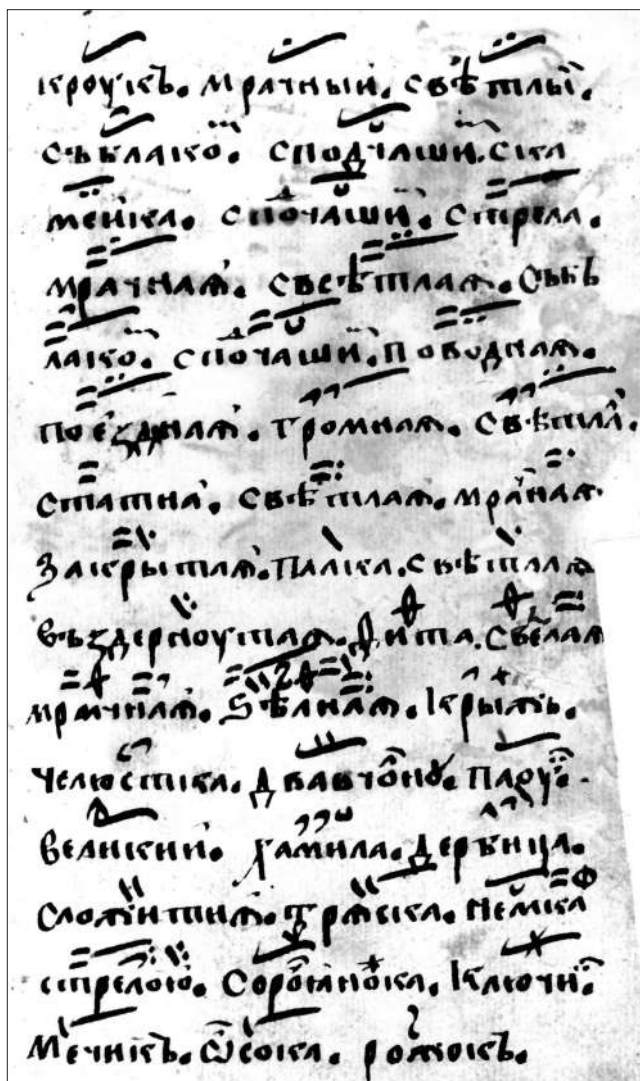 кроукъ. мрачныи. свѣтлыи.
съблако. сподчаши. ска
меика. спочаши. стрела.
мрачнаꙗ. свѣтлаꙗ. съ
лако. спочаши. поводнаꙗ.
поѣзднаꙗ. громнаꙗ. свѣтлаꙗ.
статна. свѣтлаꙗ. мранаꙗ
закрытаꙗ. палка. свѣтлаꙗ
въздерноутаꙗ. Фита.
мрачнаꙗ. ѕѣлнаꙗ. Крыжъ.
челюстка. двавчѡно. пару.
великии. хамила. дербица.
сложитиꙗ. трѧска. немка
стрелою. Сорожнока. ключи.
Мечикъ. ѿсока. рожокъ.